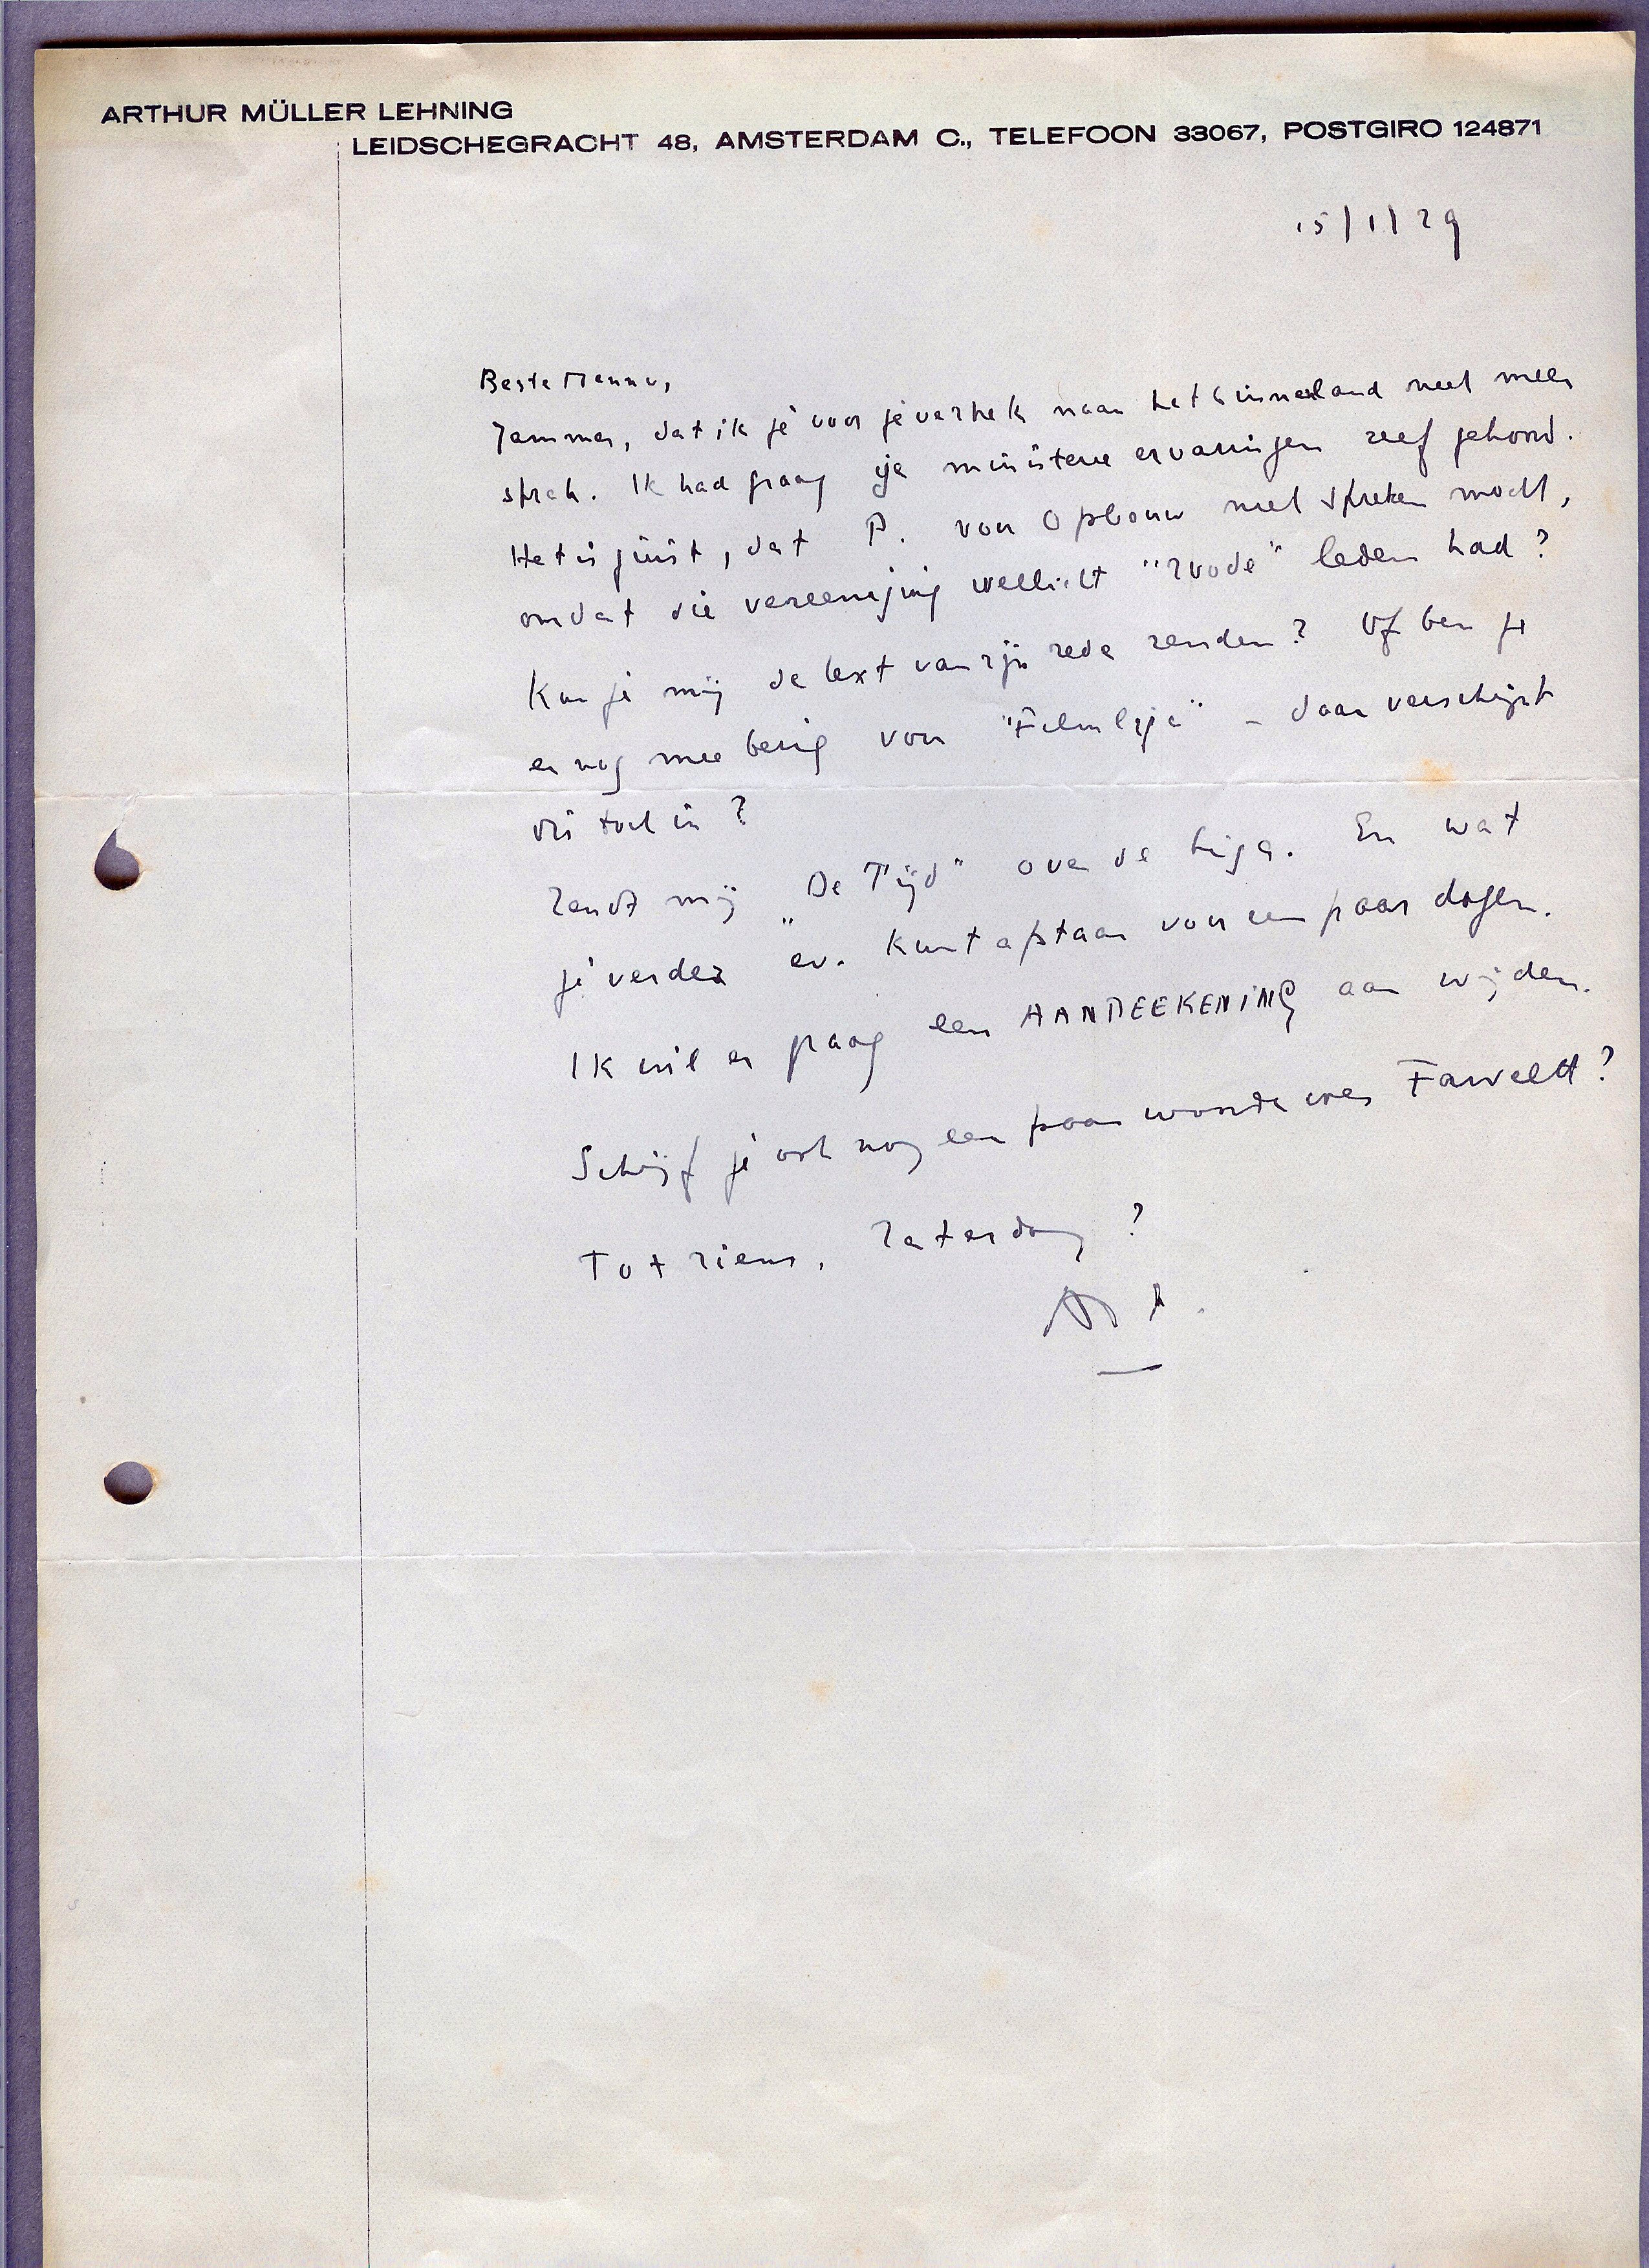 ARTHUR MÜLLER LEHNING
LEIDSCHEGRACHT 48, AMSTERDAM C., TELEFOON 33067, POSTGIRO 124871
15/1/29
Beste Menno,
Jammer, dat ik je voor je vertrek naar het binnenland niet meer
sprak. Ik had graag je ervaringen zelf gehoord.
Het is juist, dat P. voor Opbouw niet spreken mocht,
omdat die vereeniging wellicht "roode" leden had?
Kan je mij de text van zijn rede zenden? Of ben je
er nog mee bezig voor "Filmliga" - daar verschijnt
die toch in?
Zendt mij „De Tijd" over de Liga. En wat
je verder ev. kunt afstaan voor een paar dagen.
Ik wil er graag een AANTEEKENING aan wijden.
Schrijf je ook nog een paar woorden over Fawcett?
Tot ziens, Zaterdag?